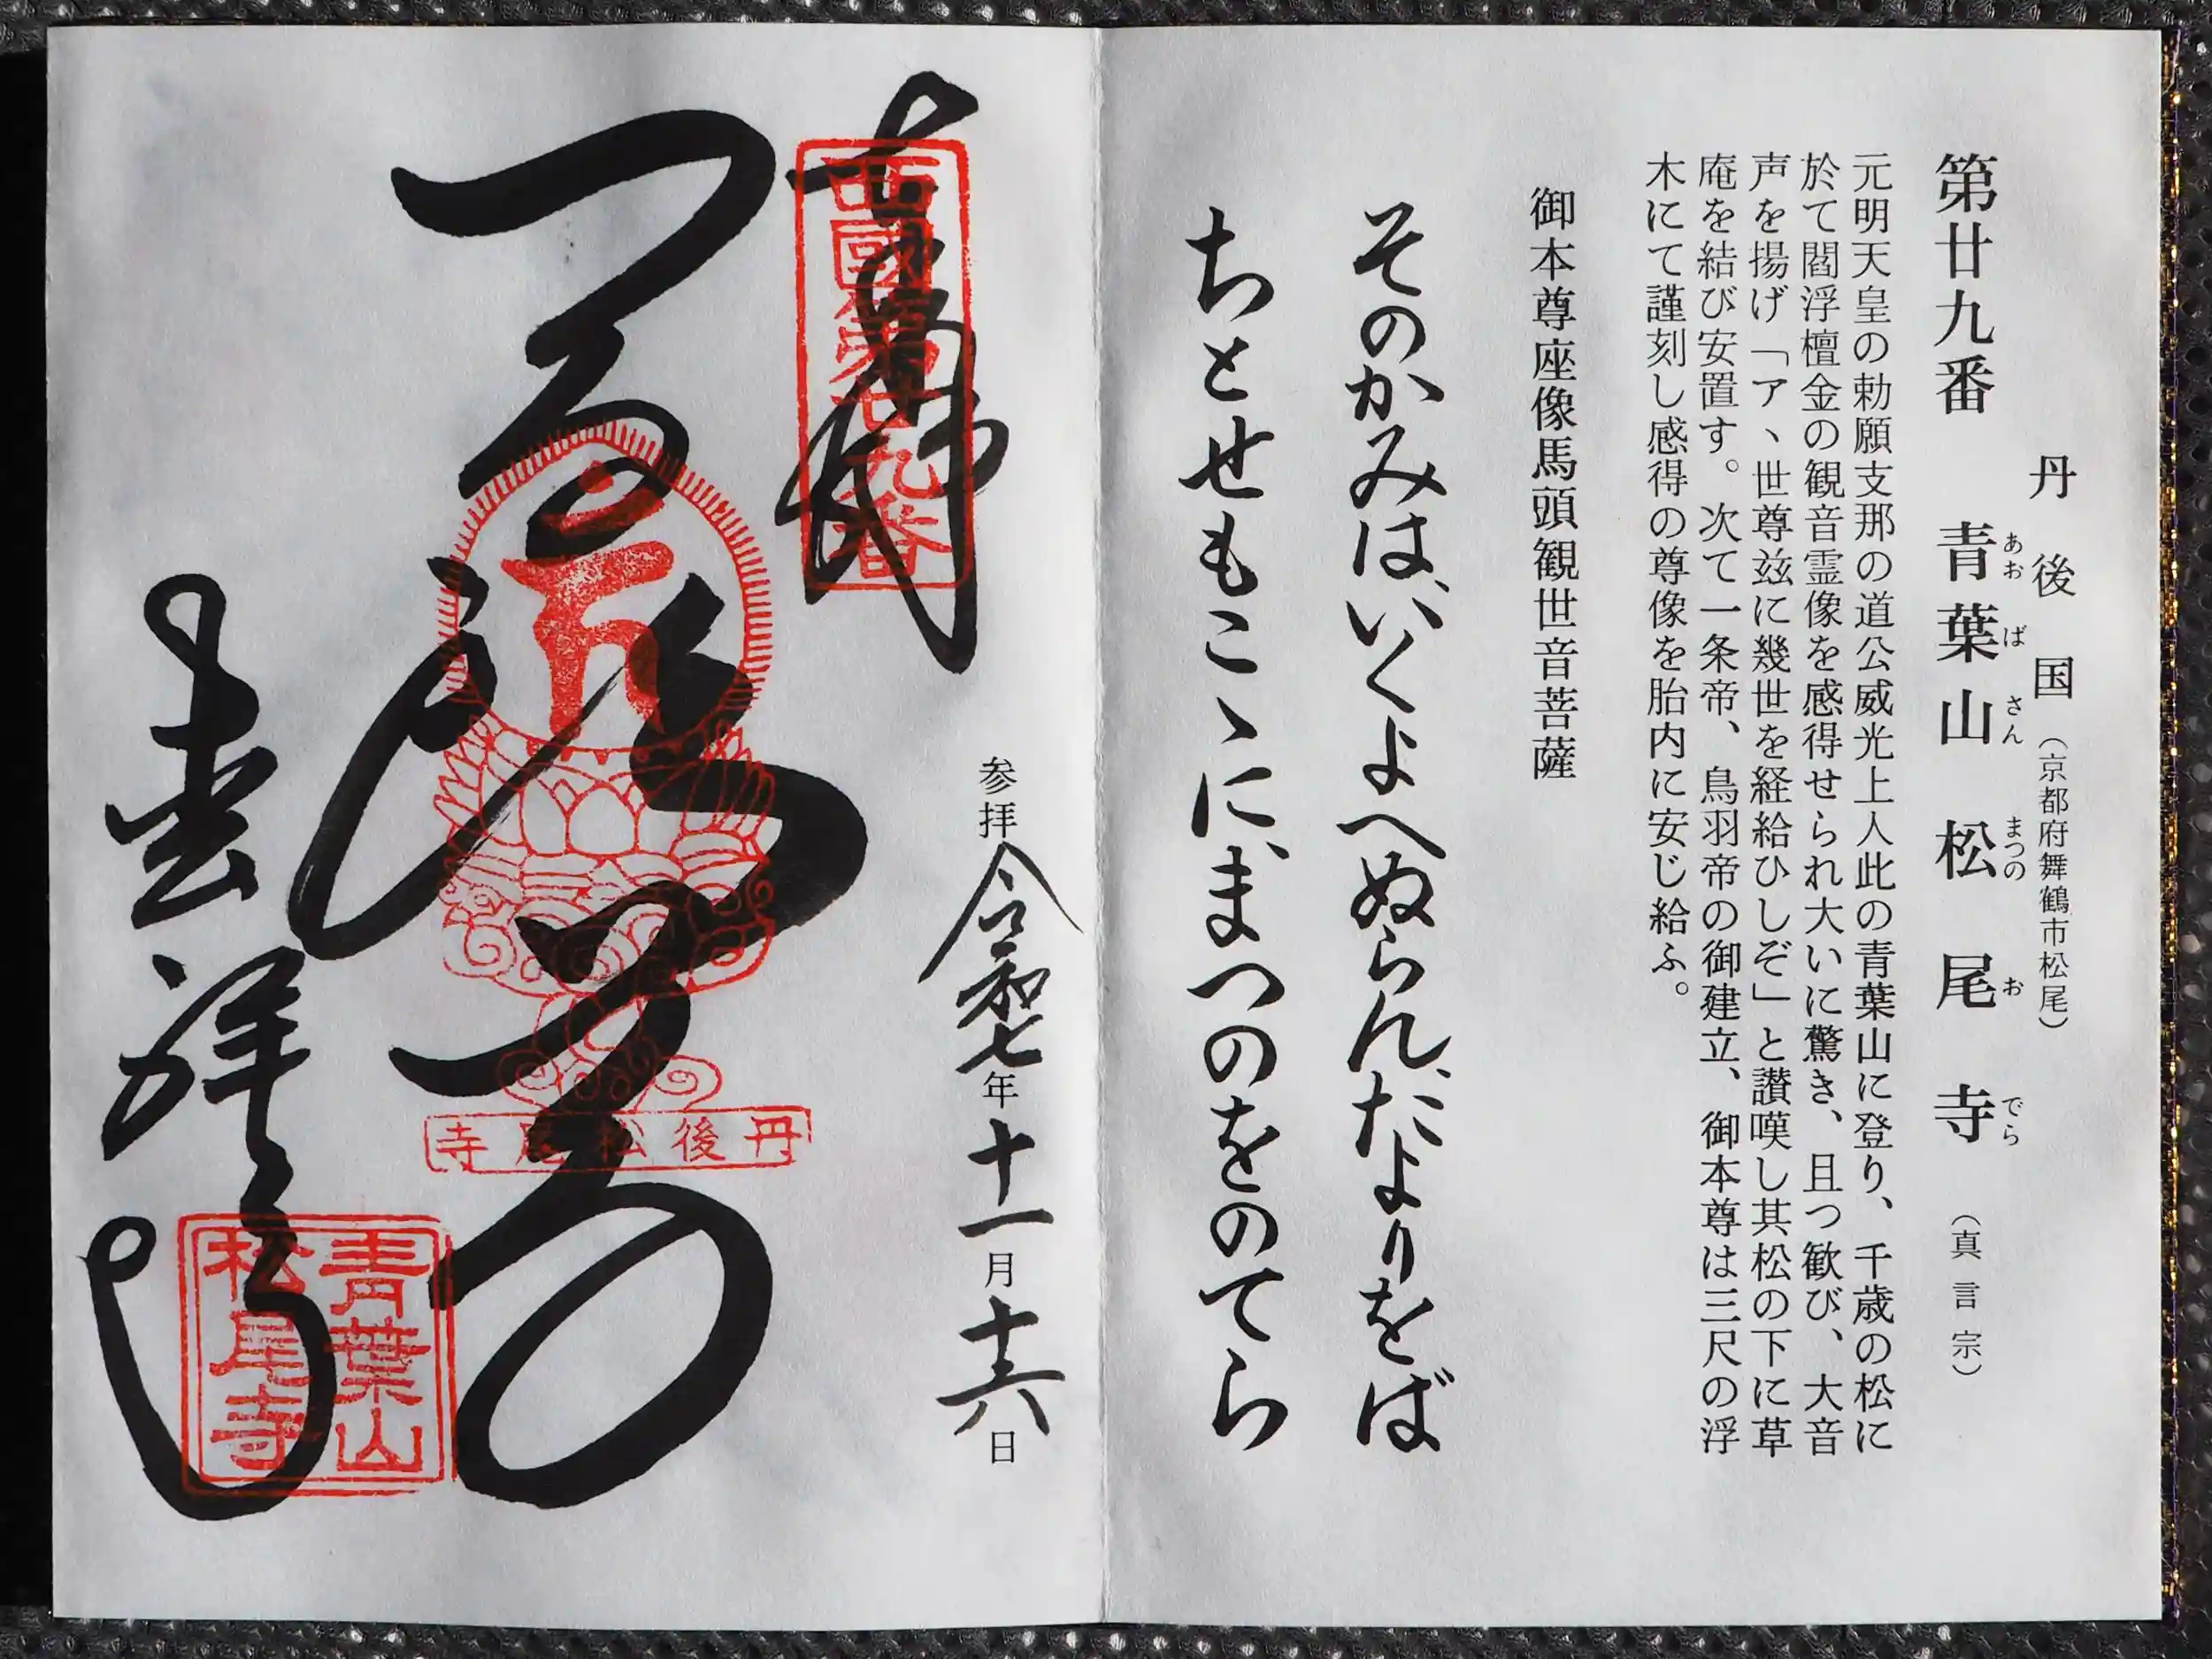 丹後国（京都府舞鶴市松尾）
第廿九番 青葉山 松尾寺（真言宗）
あおばさん まつのおでら
元明天皇の勅願支那の道公威光上人此の青葉山に登り、千歳の松に
於て閻浮檀金の観音霊像を感得せられ大いに驚き、且つ歓び、大音
声を揚げ「ア、世尊玆に幾世を経給ひしぞ」と讃嘆し其松の下に草
庵を結び安置す。次て一条帝、鳥羽帝の御建立、御本尊は三尺の浮
木にて謹刻し感得の尊像を胎内に安じ給ふ。
御本尊座像馬頭観世音菩薩
そのかみは、いくよへぬらん、たよりをば
ちとせもこゝに、まつのをのてら
参拝 令和七年十一月十六日
奉拝
西國第廿九番
丹後松尾寺
青葉山
松尾寺